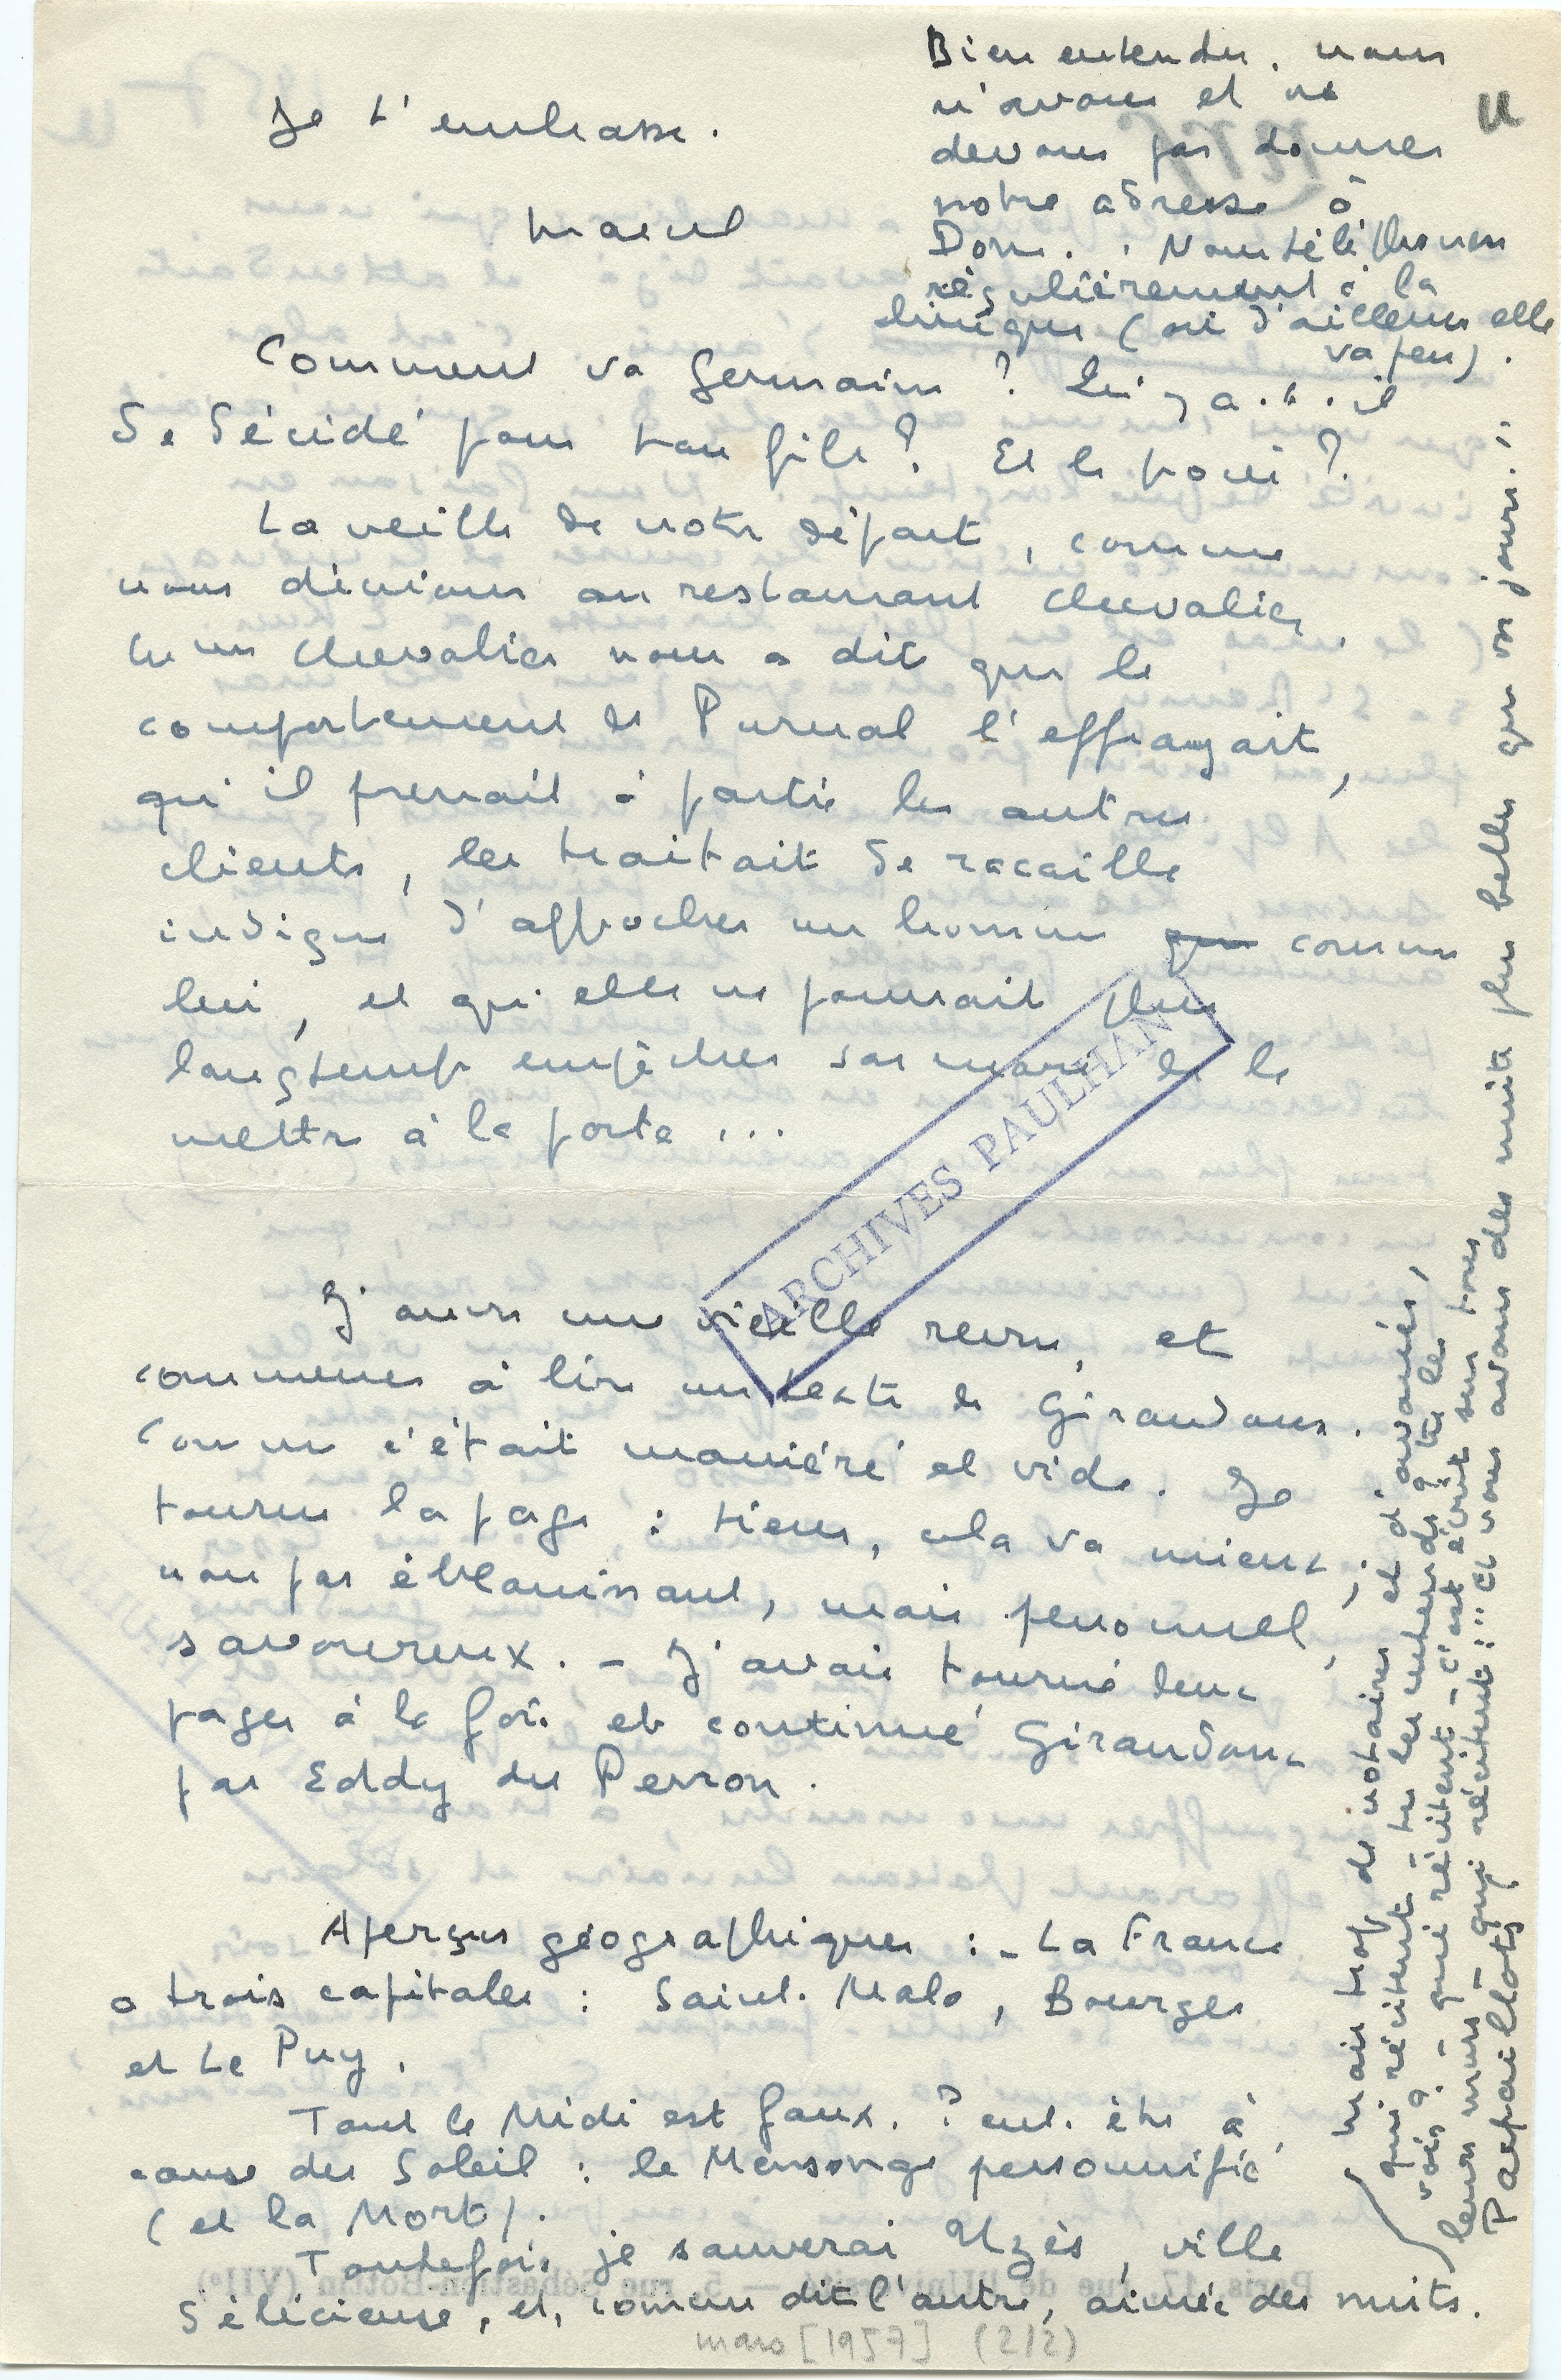 Bien entendu, nous
n'avons et ne
devons pas donner
notre adresse à
Dom. . Nous téléphonons
régulièrement à la
clinique (où d'ailleurs elle
va peu).
Je t'embrasse.
Marcel
Comment va Germaine ? Qu'y a-t-il
de décidé pour ton fils ? Et le procès ?
La veille de notre départ, comme
nous dînions au restaurant Chevalier,
Mme Chevalier nous a dit que le
comportement de Purnal l'effrayait,
qu'il prenait à partie les autres
clients, les traitait de racaille
indigne d'approcher un homme que comme
lui, et qu'elle ne pourrait plus
longtemps empêcher son mari de le
mettre à la porte ...
ARCHIVES PAULHAN
J'ouvre une vieille revue, et
commence à lire un texte de Giraudoux.
Comme c'était maniéré et vide. Je
tourne la page : tiens, cela va mieux ;
non pas éblouissant, mais personnel,
savoureux. - J'avais tourné deux
pages à la fois et continué Giraudoux
par Eddy du Perron.
Aperçus géographiques : - La France
a trois capitales : Saint-Malo, Bourges
et Le Puy.
Tout le Midi est faux. Peut-être à
cause du Soleil : le Mensonge personnifié
(et la Mort).
Toutefois je sauverai Uzès, ville
délicieuse, et, comme dit l'autre, aimée des nuits.
mars [1957] (2/2)
Mais trop de notaires et d'avoués,
qui récitent - tu les entends, tu les
vois ? - qui récitent - c'est écrit sur tous
leurs murs - qui récitent : "Et nous avons des nuits plus belles que vos jours."
Parpaillots